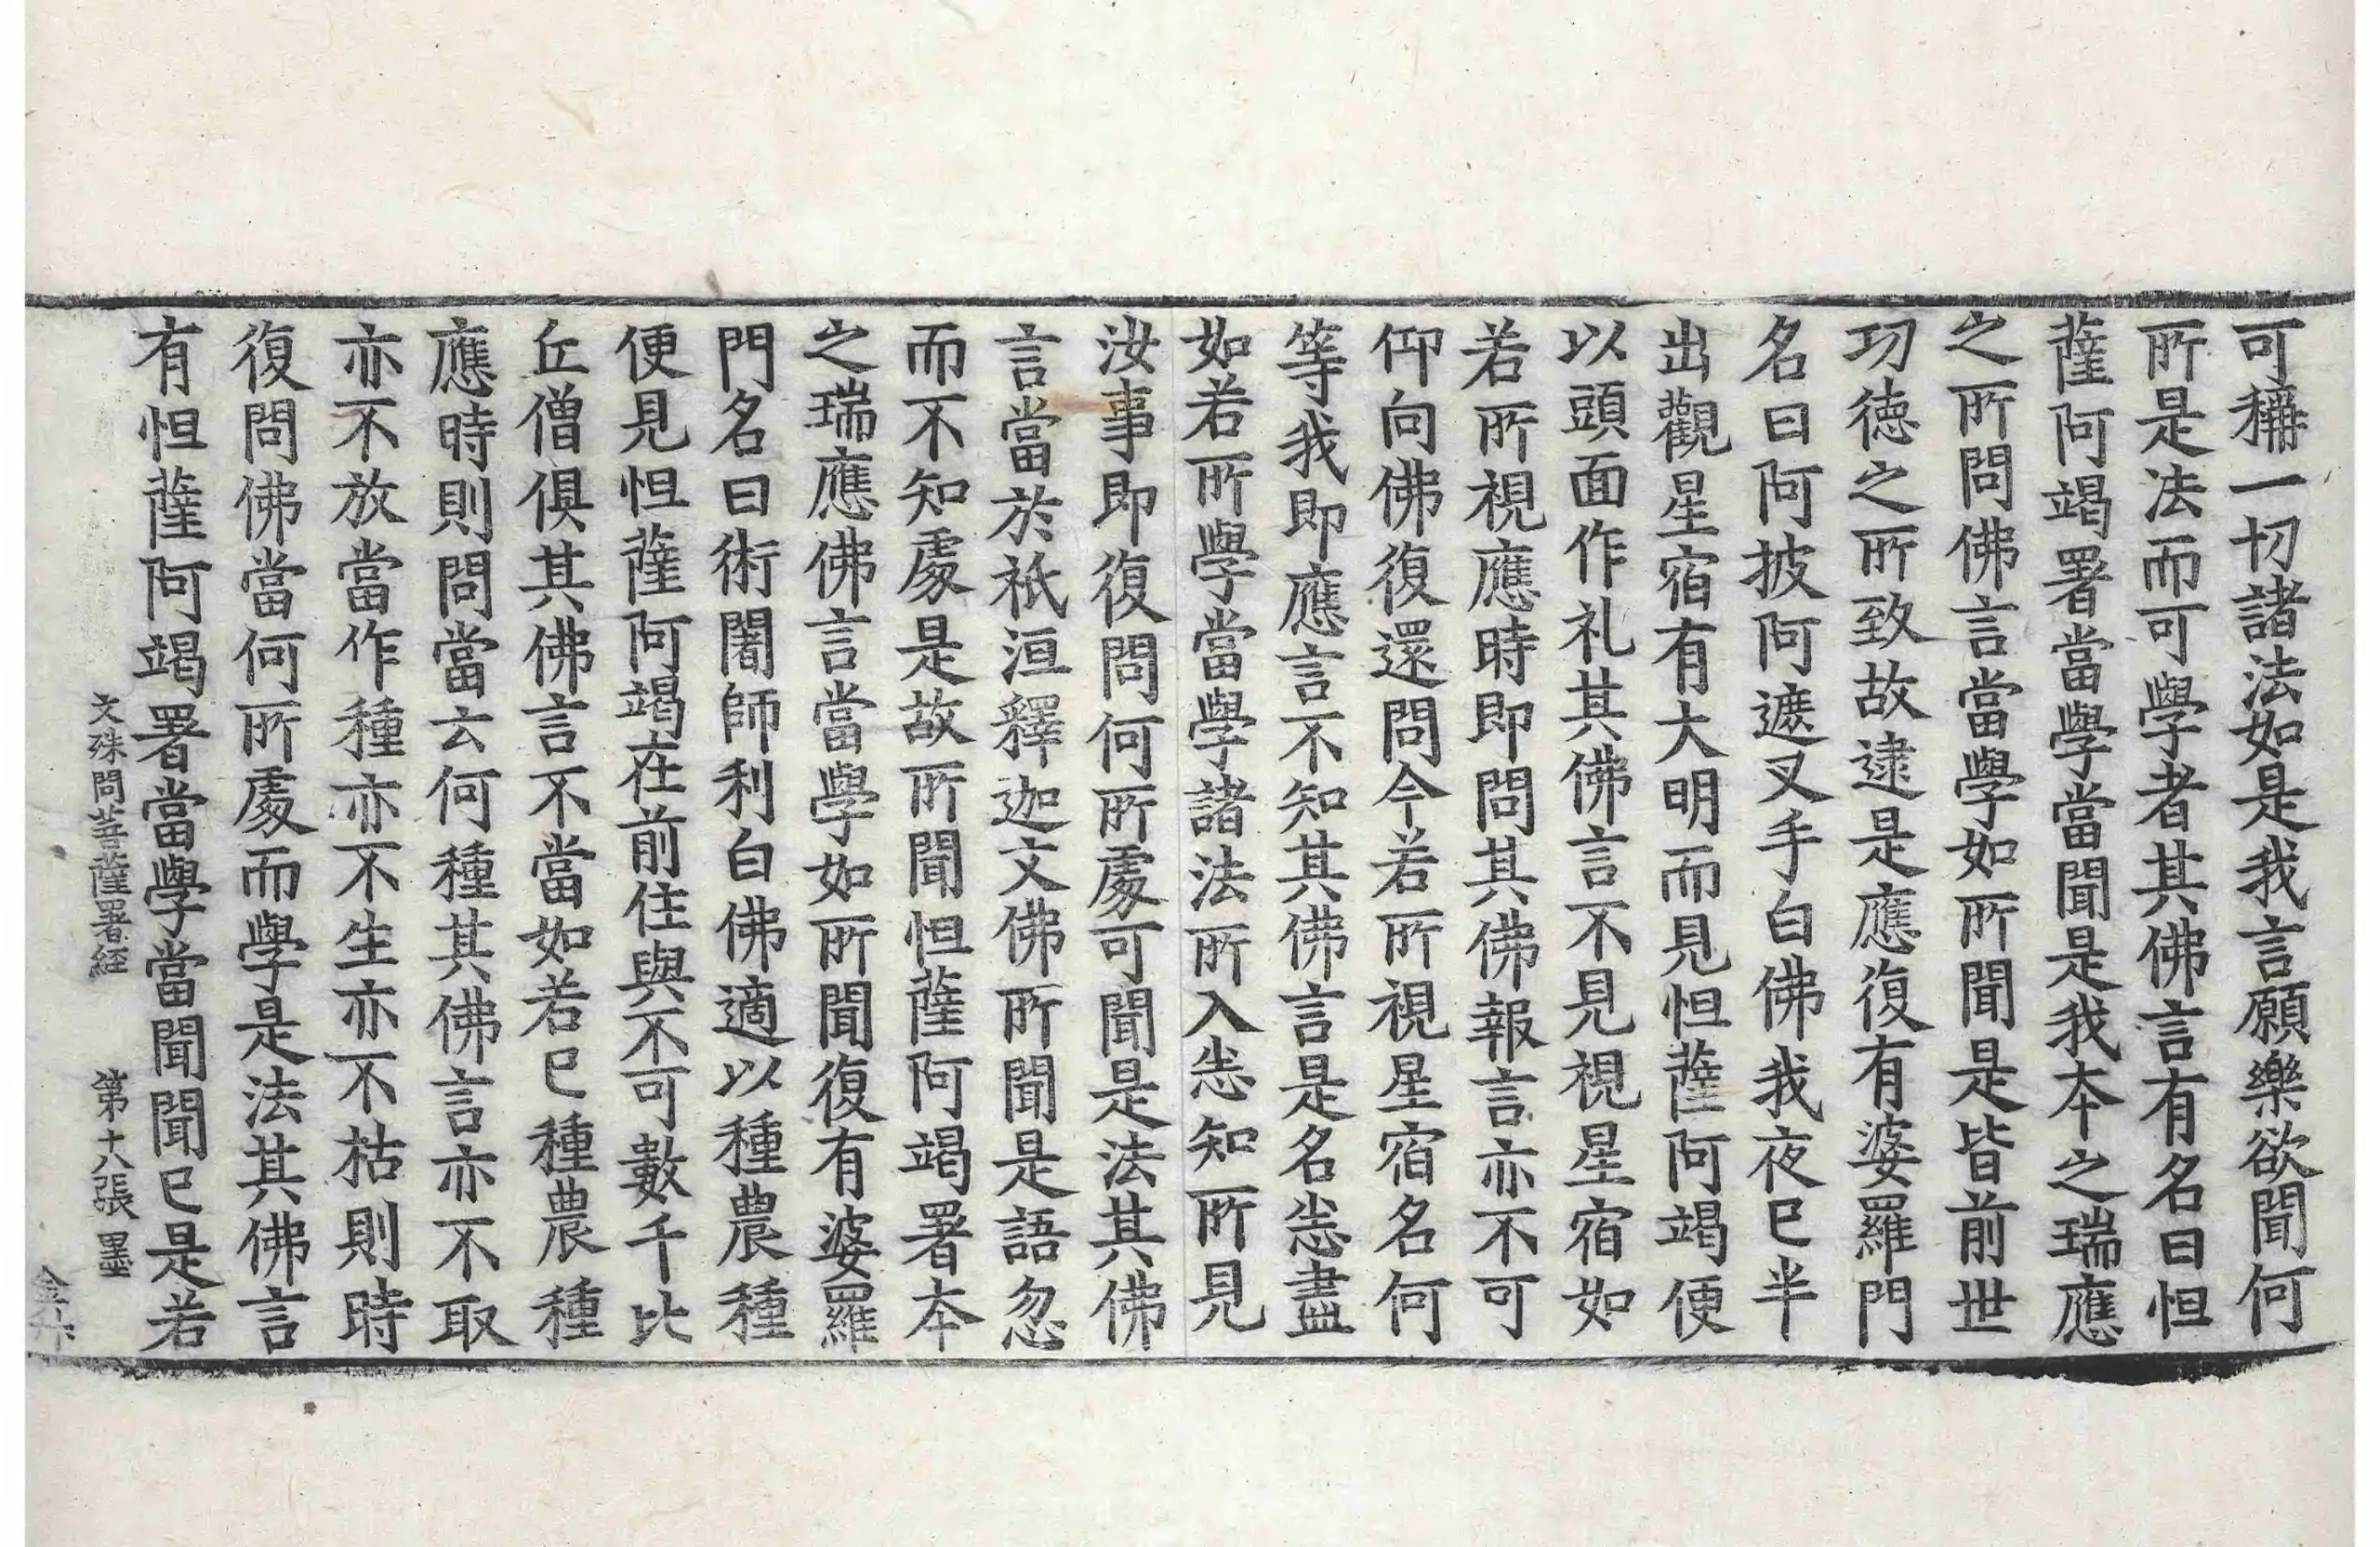 可稱一切諸法如是我言願樂欲聞何
所是法而可學者其佛言有名曰怛
薩阿竭署當學當聞是我本之瑞應
之所問佛言當學如所聞是皆前世
功徳之所致故逮是應復有婆羅門
名曰阿披阿遮叉手白佛我夜已半
出觀星宿有大明而見怛薩阿竭便
以頭面作礼其佛言不見視星宿如
若所視應時即問其佛報言亦不可
仰向佛復還問今若所視星宿名何
等我即應言不知其佛言是名悉盡
如若所學當學諸法所入悉知所見
汝事即復問何所處可聞是法其佛
言當於祇洹釋迦文佛所聞是語忽
而不知處是故所聞怛薩阿竭署本
之瑞應佛言當學如所聞復有婆羅
門名曰術闍師利白佛適以種農種
便見怛薩阿竭在前住與不可數千比
丘僧俱其佛言不當如若已種農種
應時則問當云何種其佛言亦不取
亦不放當作種亦不生亦不枯則時
復問佛當何所處而學是法其佛言
有怛薩阿竭署當學當聞聞已是若
文殊問菩薩署經 第十八張 墨